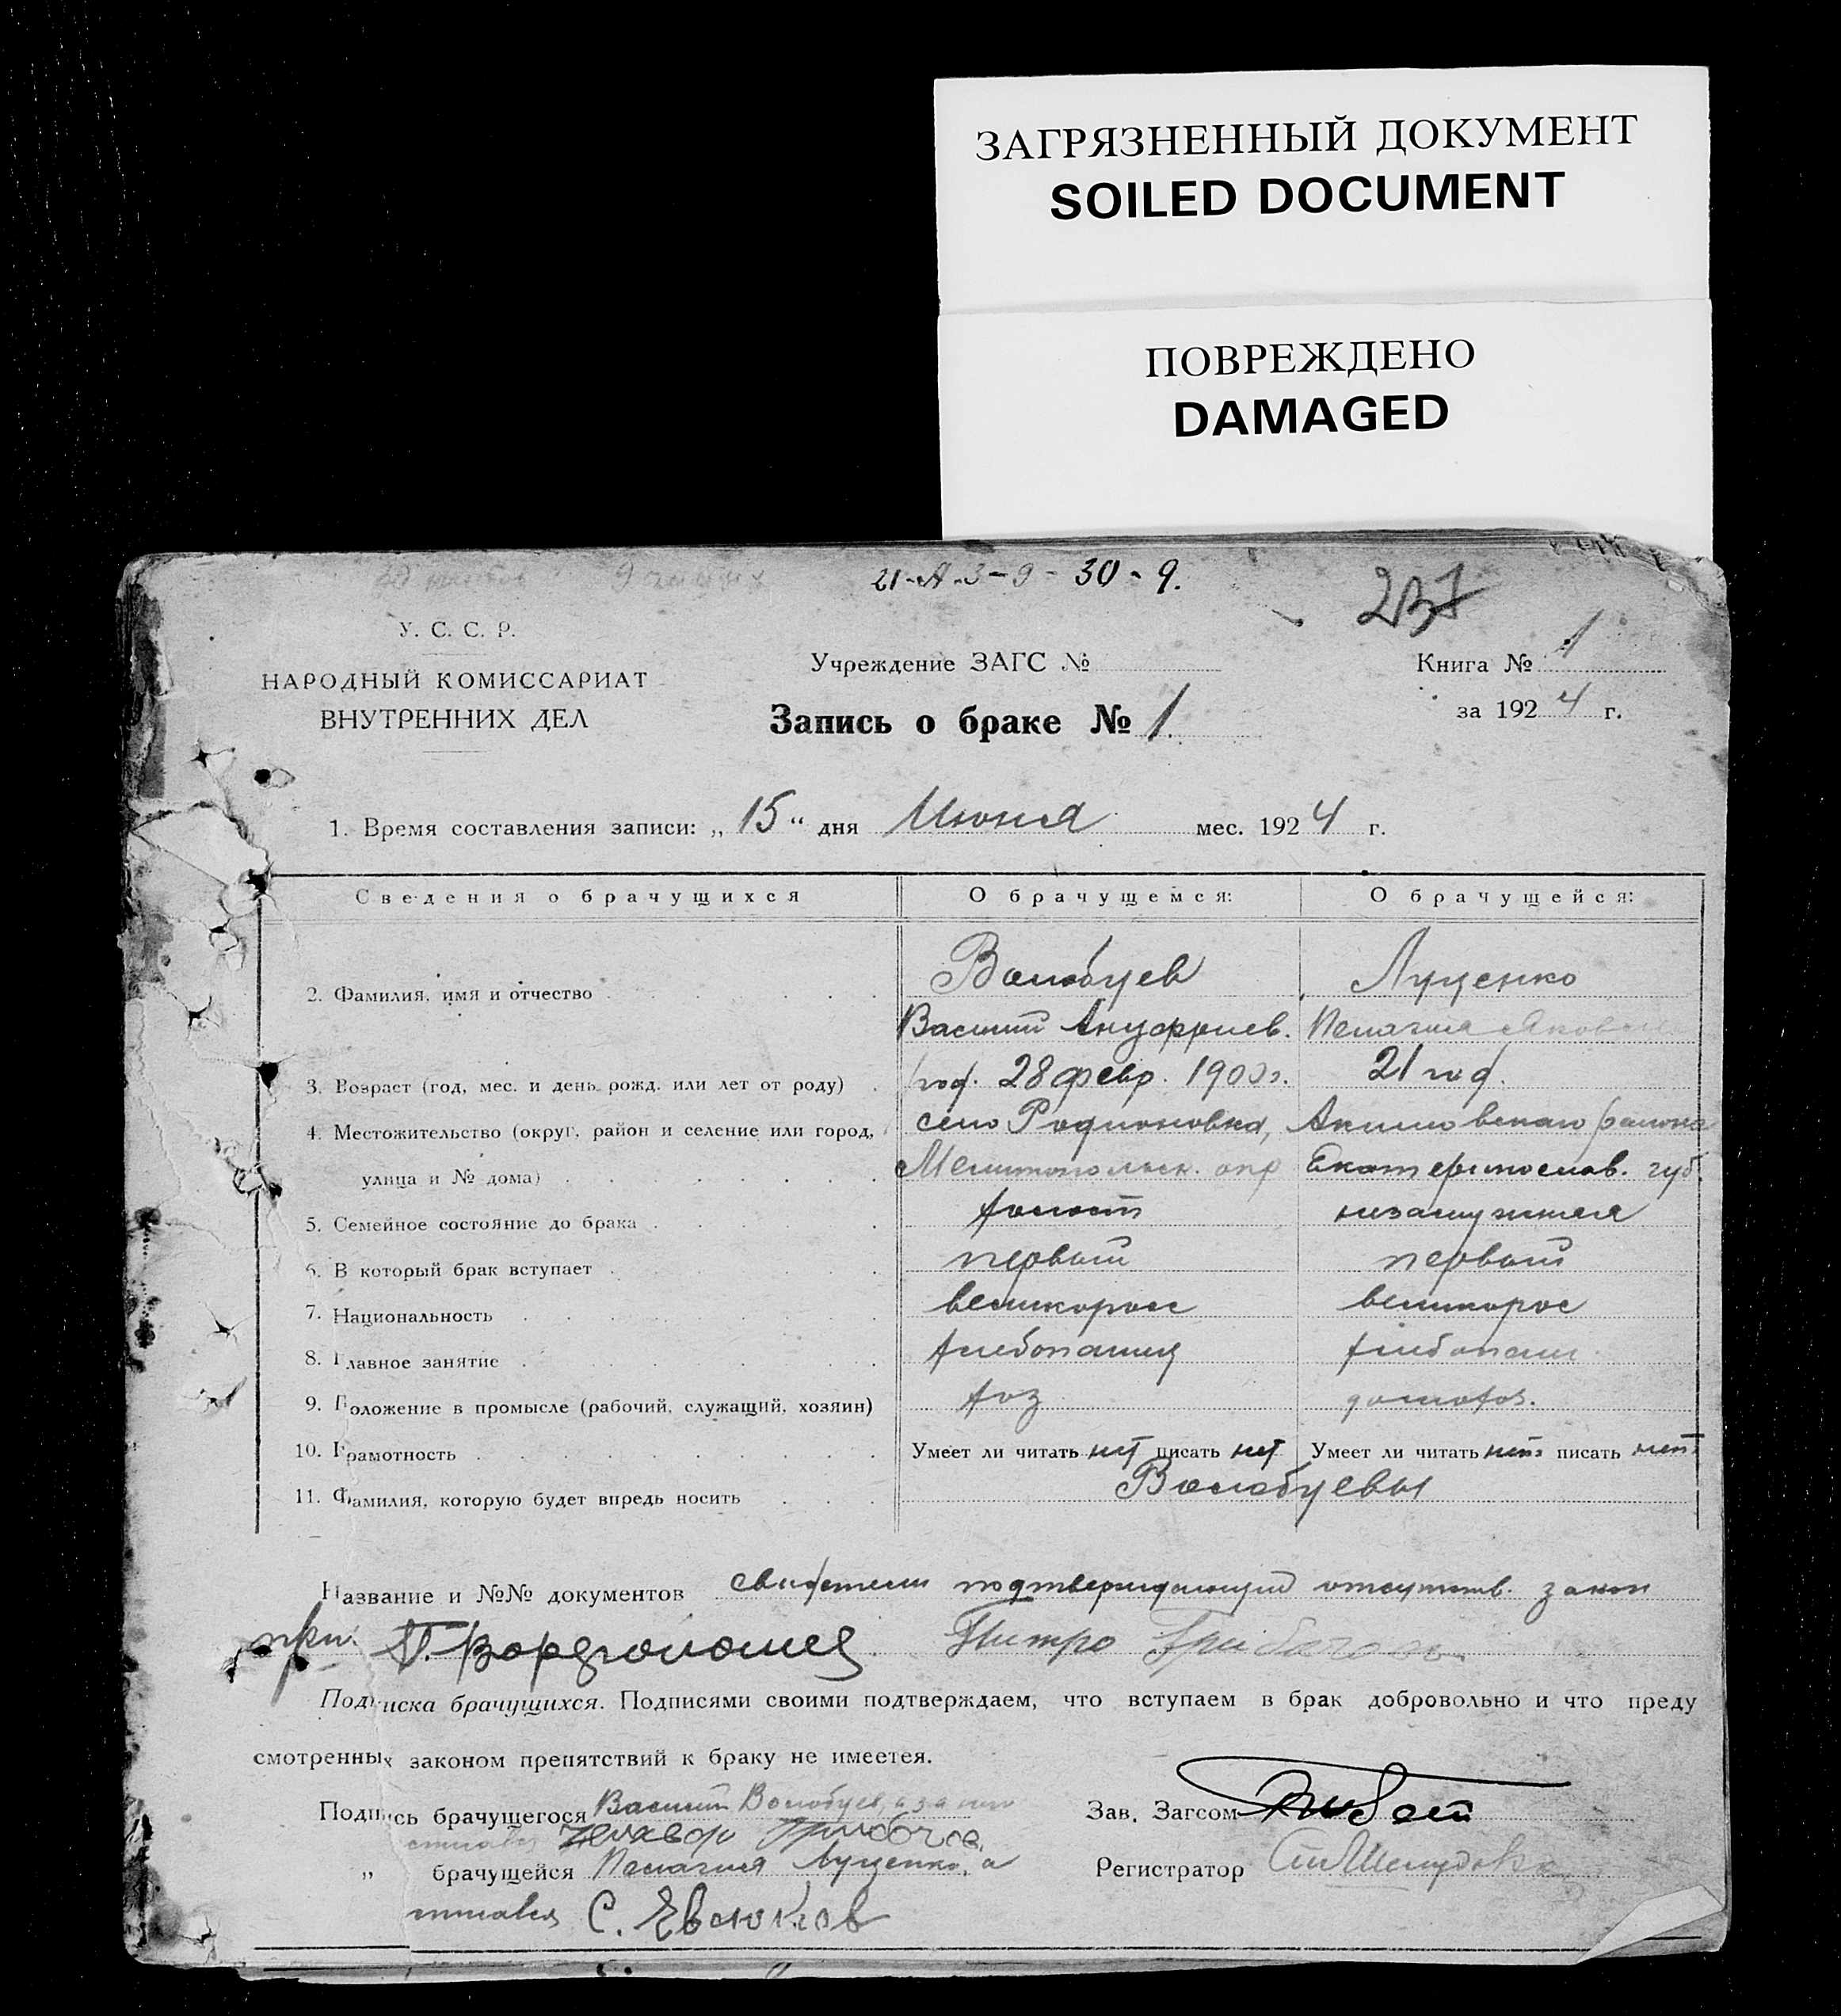 ЗАГРЯЗНЕННЫЙ ДОКУМЕНТ
SOILED DOCUMENT
ПОВРЕЖДЕНО
DAMAGED
21-А-3-9-30-9.
237
У. С. С. Р.
НАРОДНЫЙ КОМИССАРИАТ
ВНУТРЕННИХ ДЕЛ
Учреждение ЗАГС №
Запись о браке № 1.
Книга № 1
за 1924 г.
1. Время составления записи: „15“ дня Июня мес. 1924 г.
Сведения о брачущихся О брачущемся: О брачущейся:
2. Фамилия, имя и отчество Волобуев Луценко
Василий Ануфриев. Пелагия Яковл
3. Возраст (год, мес. и день рожд. или лет от роду) род. 28 февр. 1900 г. 21 год.
4. Местожительство (округ, район и селение или город, село Родионовка, Акимовского района
улица и № дома) Мелитопольск. окр Екатеринослав. губ.
5. Семейное состояние до брака холост незамужняя
6. В который брак вступает первый первый
7. Национальность великоросс великорос
8. Главное занятие хлебопашец хлебопаш
9. Положение в промысле (рабочий, служащий, хозяин) хоз домохоз.
10. Грамотность Умеет ли читать нет писать нет Умеет ли читать нет писать нет
11. Фамилия, которую будет впредь носить Волобуевы
Название и №№ документов свидетели подтверждающие отсутств. закон
Подписка брачущихся. Подписями своими подтверждаем, что вступаем в брак добровольно и что преду
смотренных законом препятствий к браку не имеется.
Подпись брачущегося Василий Волобуев, а за него
Зав. Загсом
„ брачущейся Пелагия Луценко, а
Регистратор
С. Евсюков